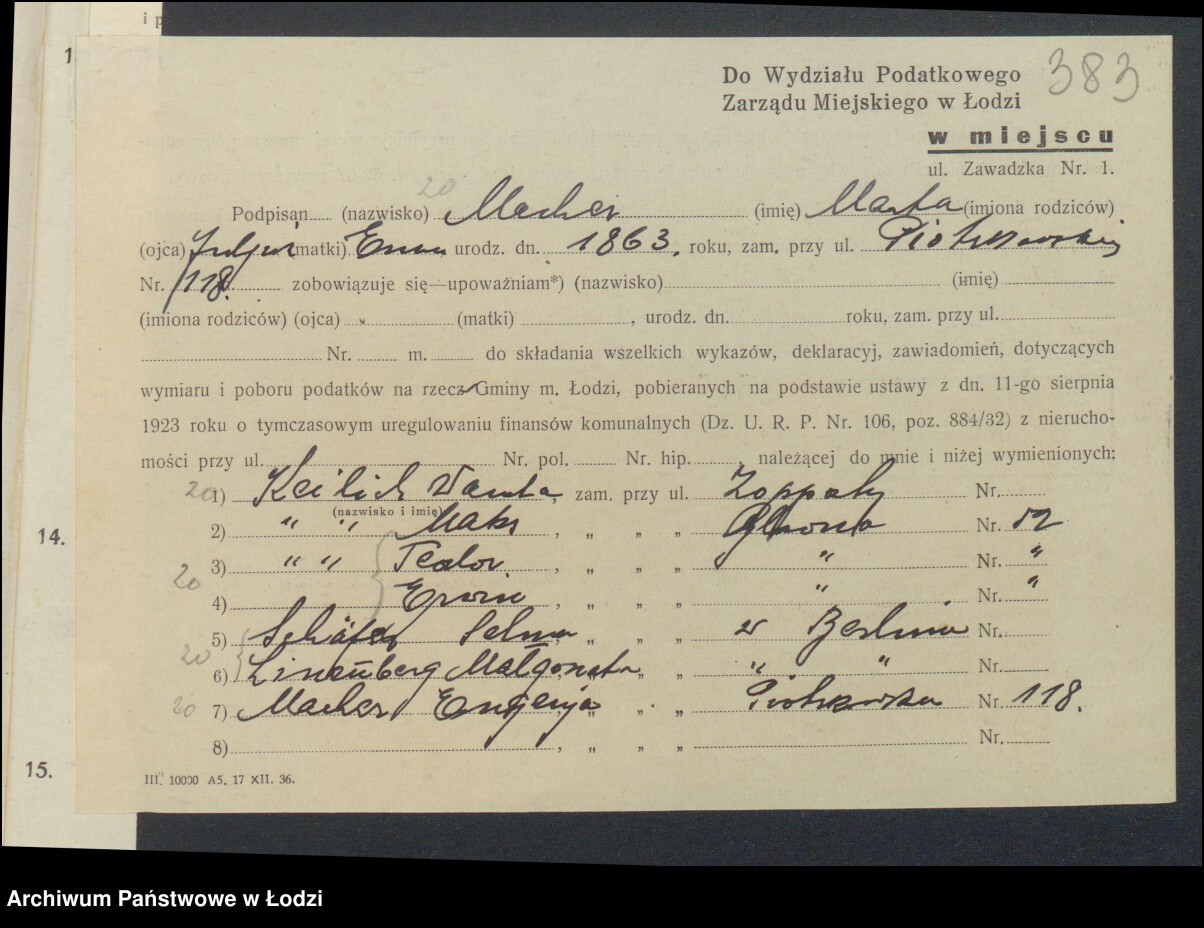 i p
1
383
Do Wydziału Podatkowego
Zarządu Miejskiego w Łodzi
w miejscu
ul. Zawadzka Nr. 1.
20
Podpisan (nazwisko) Macher (imię) Marta (imiona rodziców)
(ojca) (matki) urodz. dn. 1863. roku, zam. przy ul. Piotrkowskiej
Nr. 118. zobowiązuje się—upoważniam*) (nazwisko) (imię)
(imiona rodziców) (ojca) (matki) , urodz. dn. roku, zam. przy ul.
Nr. m. do składania wszelkich wykazów, deklaracyj, zawiadomień, dotyczących
wymiaru i poboru podatków na rzecz Gminy m. Łodzi, pobieranych na podstawie ustawy z dn. 11-go sierpnia
1923 roku o tymczasowym uregulowaniu finansów komunalnych (Dz. U. R. P. Nr. 106, poz. 884/32) z nierucho-
mości przy ul. Nr. pol. Nr. hip. , należącej do mnie i niżej wymienionych:
20 1) Keilich Wanda, zam. przy ul. Zoppoty Nr.
(nazwisko i imię)
2) " " Maks , „ „ „ Główna Nr. 52
3) " " Teodor , „ „ „ " Nr. "
20 4) Erwin , „ „ „ " Nr. "
5) Schäfer Selma „ „ „ w Berlinie Nr.
20 6) Lineuberg Małgorzata „ „ " " Nr.
20 7) Macher Eugenja „ „ „ Piotrkowska Nr. 118.
8) , „ „ „ Nr.
14.
15.
III. 10000 A5. 17 XII. 36.
Archiwum Państwowe w Łodzi